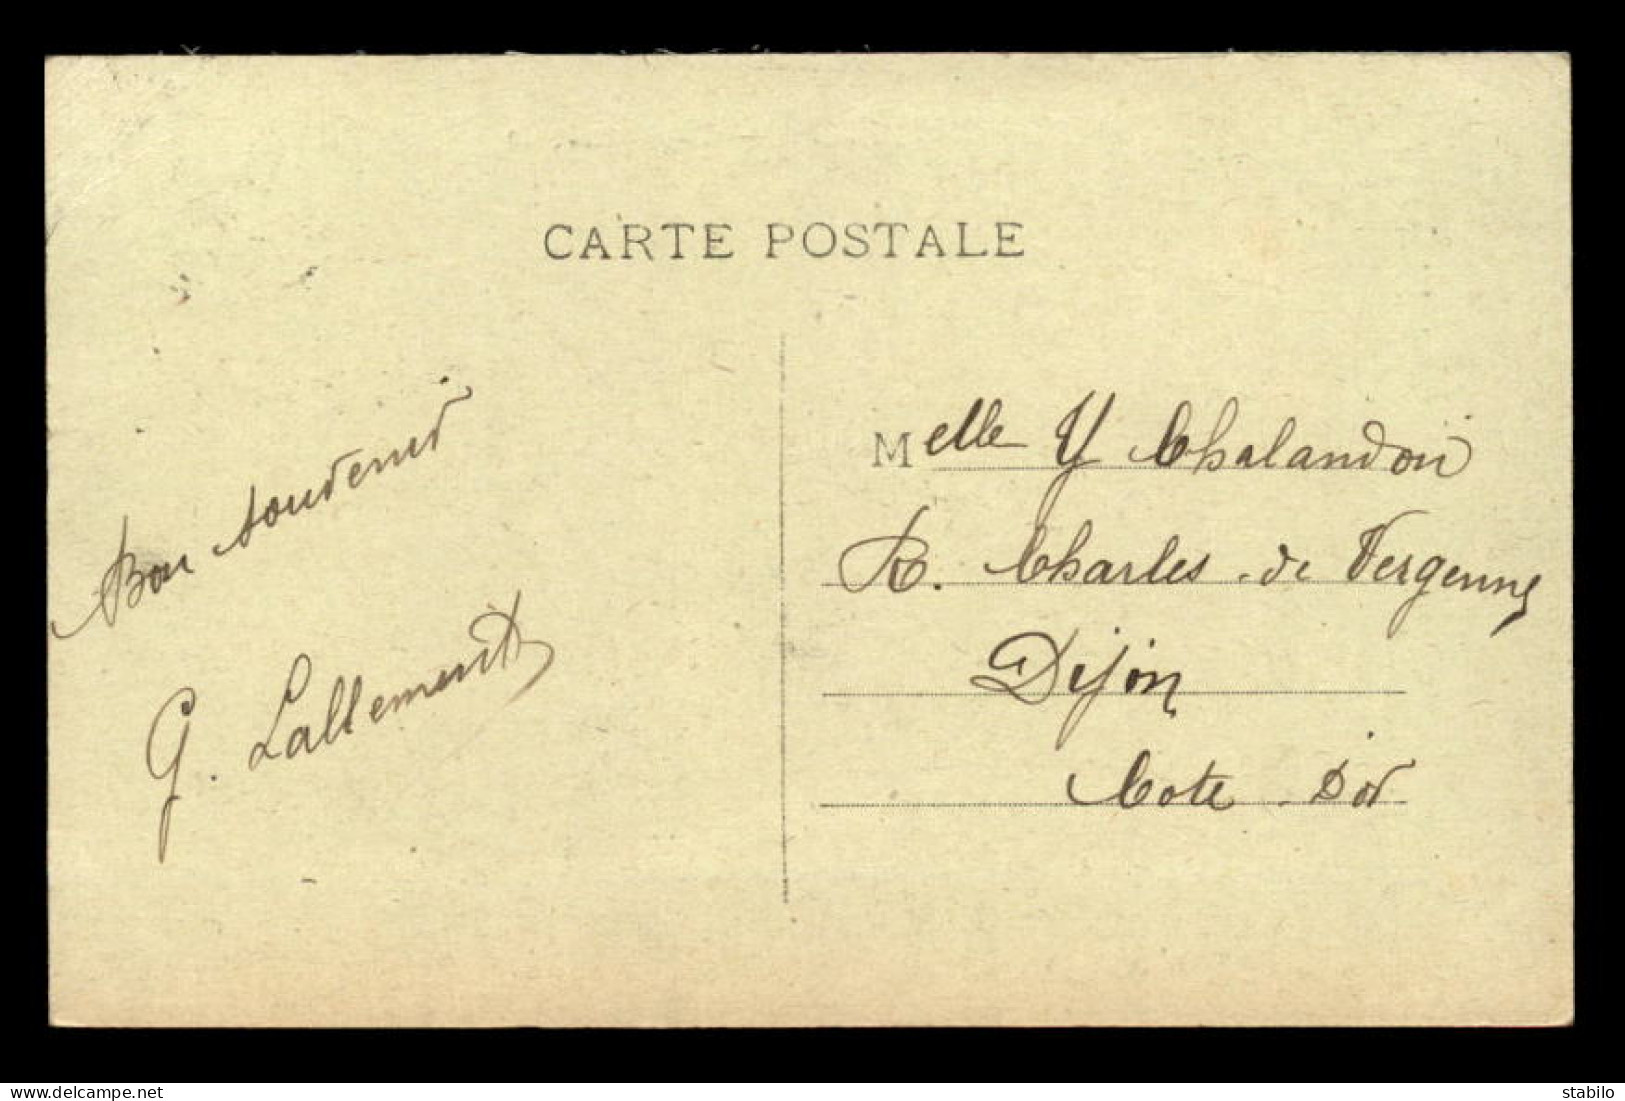 CARTE POSTALE
Bon souvenir
G. Lallement
Melle Y Chalandon
R. Charles de Vergennes
Dijon
Cote D'or
www.delcampe.net
stabilo